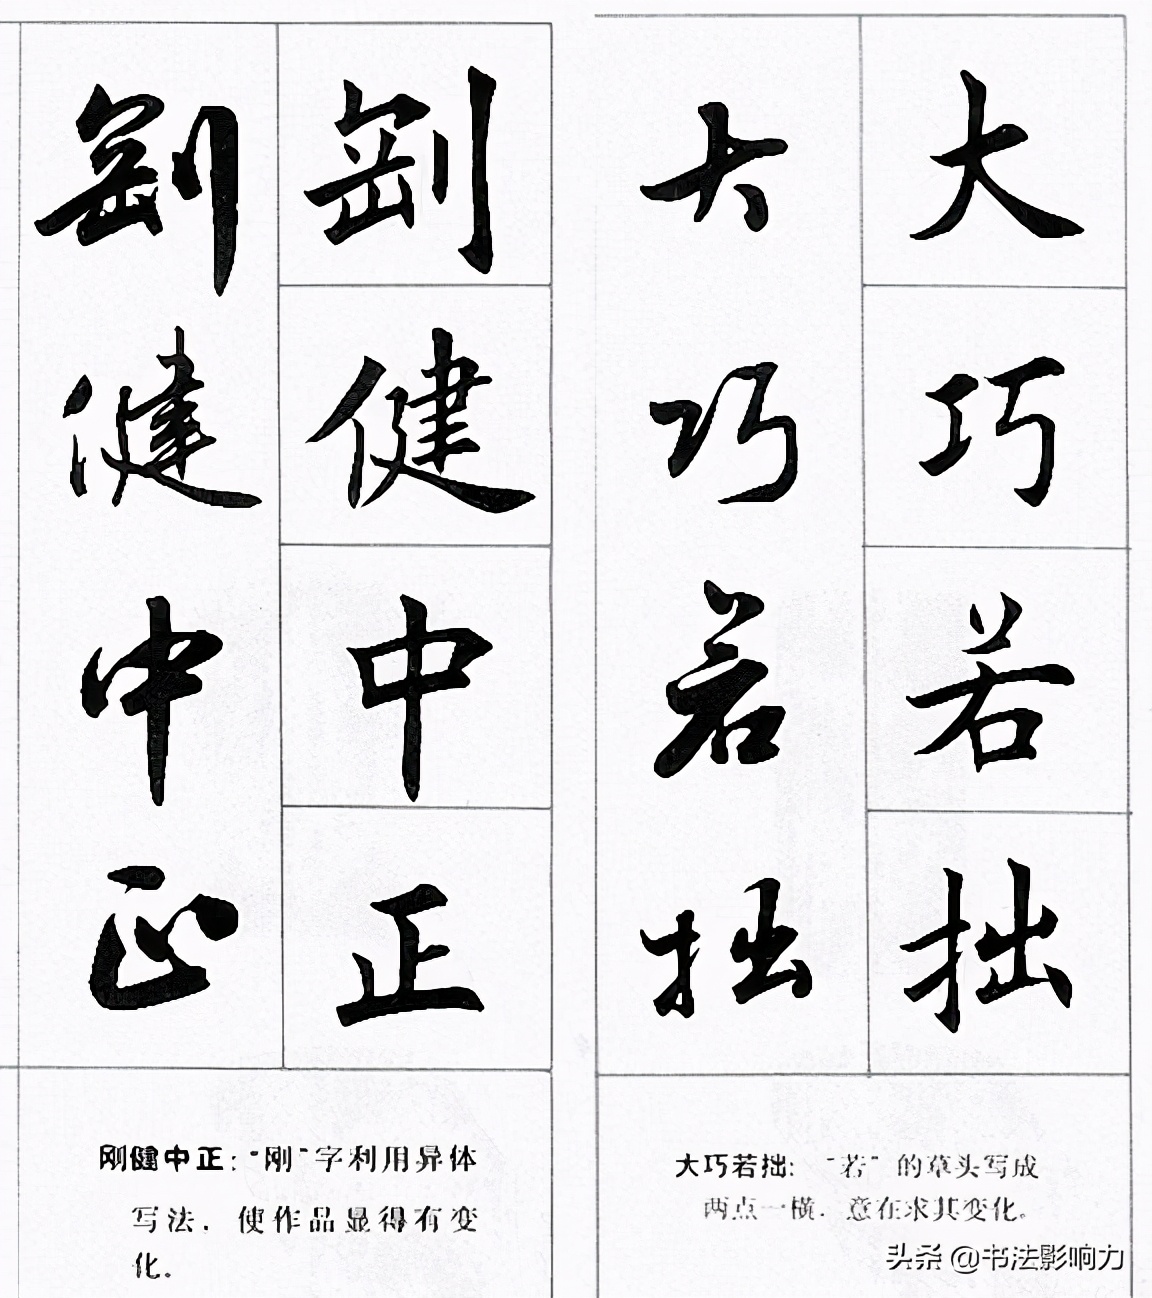 大巧若拙
大巧若拙
刚健中正
刚健中正
大巧若拙：“若”的草头写成
两点一横，意在求其变化。
刚健中正：“刚”字利用异体
写法，使作品显得有变
化。
头条 @书法影响力